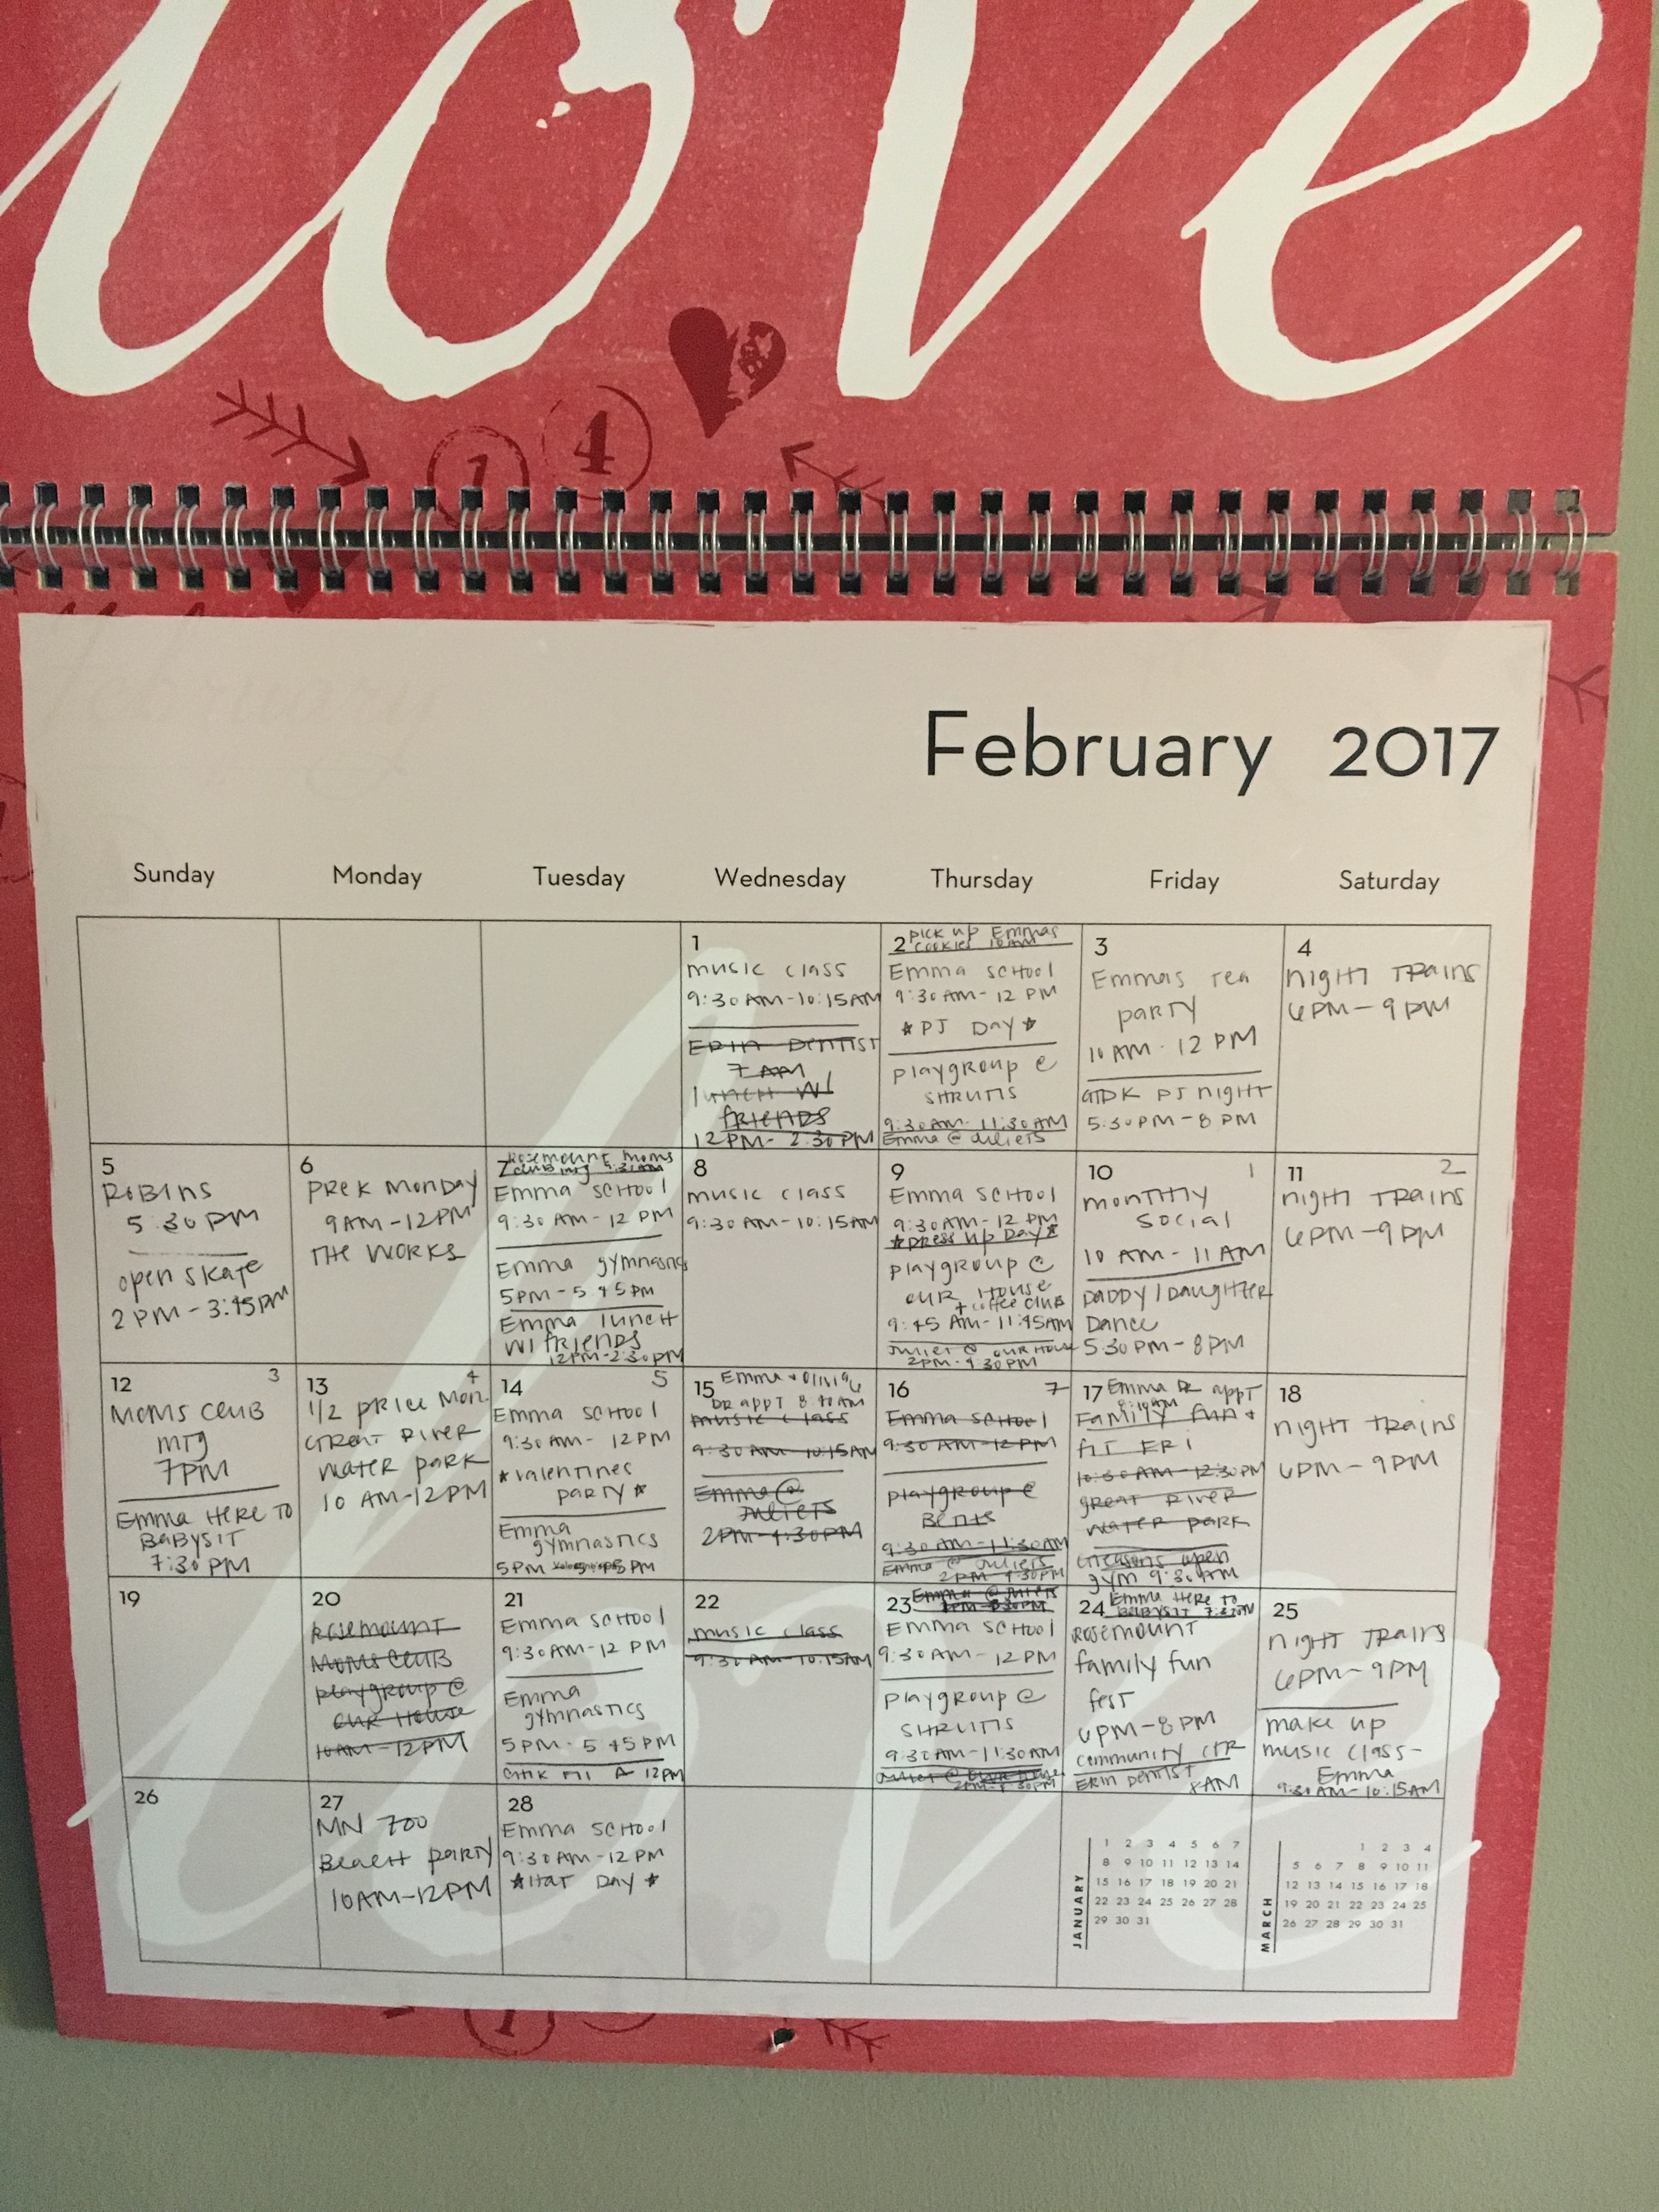 love
1 4
February 2017
Sunday Monday Tuesday Wednesday Thursday Friday Saturday
1
music class
9:30AM-10:15AM
ERIN DENTIST
7 AM
lunch w/
friends
12PM-2:30PM
2 pick up Emmas
cookies 10AM
Emma SCHOOL
9:30AM-12 PM
*PJ DAY*
playgroup @
SHRUTIS
9:30AM-11:30AM
Emma @ Juliets
3
Emmas Tea
party
10 AM-12 PM
PJ night
5:30PM-8PM
4
night TRAINS
6PM-9PM
5
ROBINS
5:30PM
open skate
2PM-3:45PM
6
Prek Monday
9AM-12PM
THE WORKS
7 Rosemount moms
club mtg 9:30AM
Emma SCHOOL
9:30AM-12 PM
Emma gymnastics
5PM-5:45PM
Emma lunch
w/ friends
12PM-2:30PM
8
music class
9:30AM-10:15AM
9
Emma SCHOOL
9:30AM-12 PM
*Dress up Day*
playgroup @
our House
+ coffee club
9:45 AM-11:45AM
Juliet @ our House
2PM-4:30PM
10 1
monthly
social
10 AM-11AM
DADDY/DAUGHTER
Dance
5:30PM-8PM
11 2
night TRAINS
6PM-9PM
12 3
Moms club
mtg
7PM
Emma HERE TO
BABYSIT
7:30PM
13 4
1/2 price Mon.
Great River
water park
10 AM-12PM
14 5
Emma SCHOOL
9:30AM-12PM
*valentines
party*
Emma
gymnastics
5PM-5:45PM
15 Emma + Olivia
DR appt 8:40AM
music class
9:30AM-10:15AM
Emma @
Juliets
2PM-4:30PM
16 7
Emma SCHOOL
9:30AM-12PM
playgroup @
9:30AM-11:30AM
Emma @ Juliets
2PM-4:30PM
17 Emma DR appt
8:10AM
Family fun +
fit FRI
10:30AM-12:30PM
great River
water park
open
gym 9:30AM
18
night TRAINS
6PM-9PM
19
20
Rosemount
Moms Club
playgroup @
our House
10AM-12PM
21
Emma SCHOOL
9:30AM-12 PM
Emma
gymnastics
5PM-5:45PM
CHIK FIL A 12PM
22
music class
9:30AM-10:15AM
23 Emma @ Juliets
Emma SCHOOL
9:30AM-12PM
playgroup @
SHRUTIS
9:30AM-11:30AM
Juliet @ our House
24 Emma Here to
BABYSIT 7:30PM
Rosemount
family fun
fest
6PM-8PM
community CTR
Erin Dentist
8AM
25
night TRAINS
6PM-9PM
make up
music class-
Emma
9:30AM-10:15AM
26
27
MN ZOO
Beach party
10AM-12PM
28
Emma SCHOOL
9:30AM-12PM
*Hat DAY*
JANUARY
1 2 3 4 5 6 7
8 9 10 11 12 13 14
15 16 17 18 19 20 21
22 23 24 25 26 27 28
29 30 31
MARCH
1 2 3 4
5 6 7 8 9 10 11
12 13 14 15 16 17 18
19 20 21 22 23 24 25
26 27 28 29 30 31